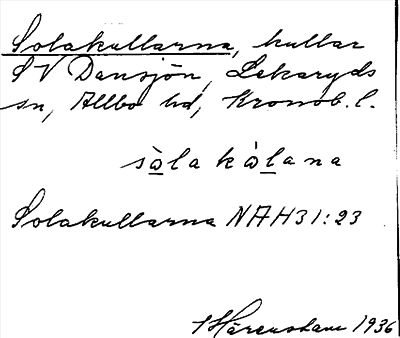 Solakullarna, kullar
SV Dansjön, Lekaryds
sn, Allbo hd, Kronob. l.
sòlakòlana
Solakullarna NAH31:23
1936